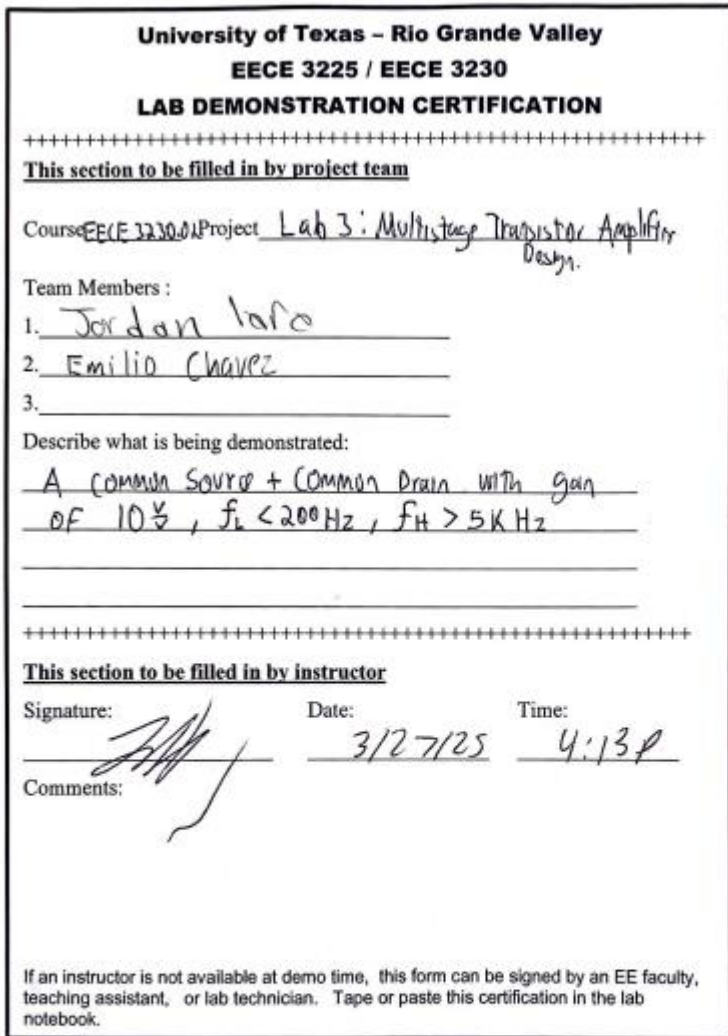 University of Texas – Rio Grande Valley
EECE 3225 / EECE 3230
LAB DEMONSTRATION CERTIFICATION
++++++++++++++++++++++++++++++++++++++++++++++++++++++++++++
This section to be filled in by project team
Course EECE 3230.01 Project Lab 3: Multistage Transistor Amplifier
Design.
Team Members :
1. Jordan lara
2. Emilio Chavez
3.
Describe what is being demonstrated:
A Common Source + Common Drain with gain
of 10 V/V, fL < 200 Hz, fH > 5K Hz
++++++++++++++++++++++++++++++++++++++++++++++++++++++++++++
This section to be filled in by instructor
Signature: Date: Time:
3/27/25 4:13 P
Comments:
If an instructor is not available at demo time, this form can be signed by an EE faculty,
teaching assistant, or lab technician. Tape or paste this certification in the lab
notebook.